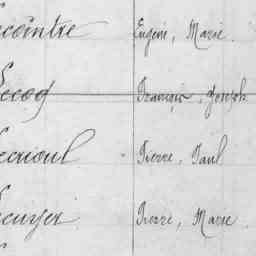 ecointre Eugène, Marie.
Lecoq François, Joseph
Lecrioul Pierre, Paul
Lecuyer Pierre, Marie